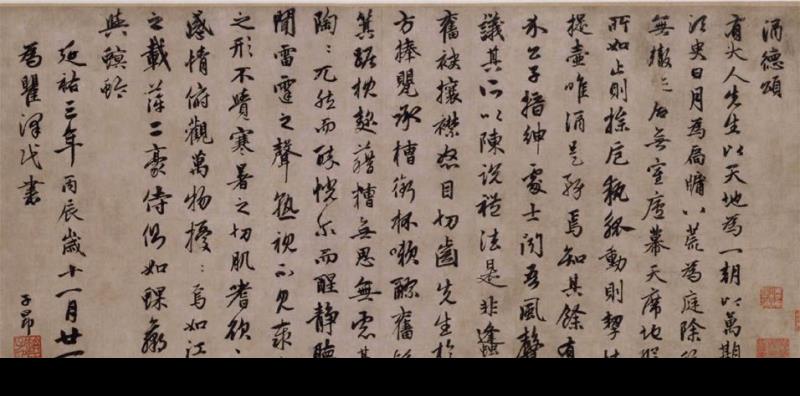 酒德頌
有大人先生以天地為一朝以萬期
須臾日月為扃牖八荒為庭除
無轍之居無室廬幕天席地
所如止則操卮執觚動則挈
提壺唯酒是務焉知其餘有
介公子搢紳處士聞吾風聲
議其所以陳說禮法是非蠭
奮袂攘襟怒目切齒先生於
方捧甖承槽銜杯漱醪奮
箕踞枕麴藉糟無思無慮其
陶=兀然而醉恍尔而醒靜聽
聞雷霆之聲孰視不見泰
之形不覺寒暑之切肌嗜欲之
感情俯觀萬物擾=焉如江
之載萍二豪侍側如蜾蠃
與螟蛉
延祐三年丙辰歲十一月廿一
為瞿澤民書
子昂